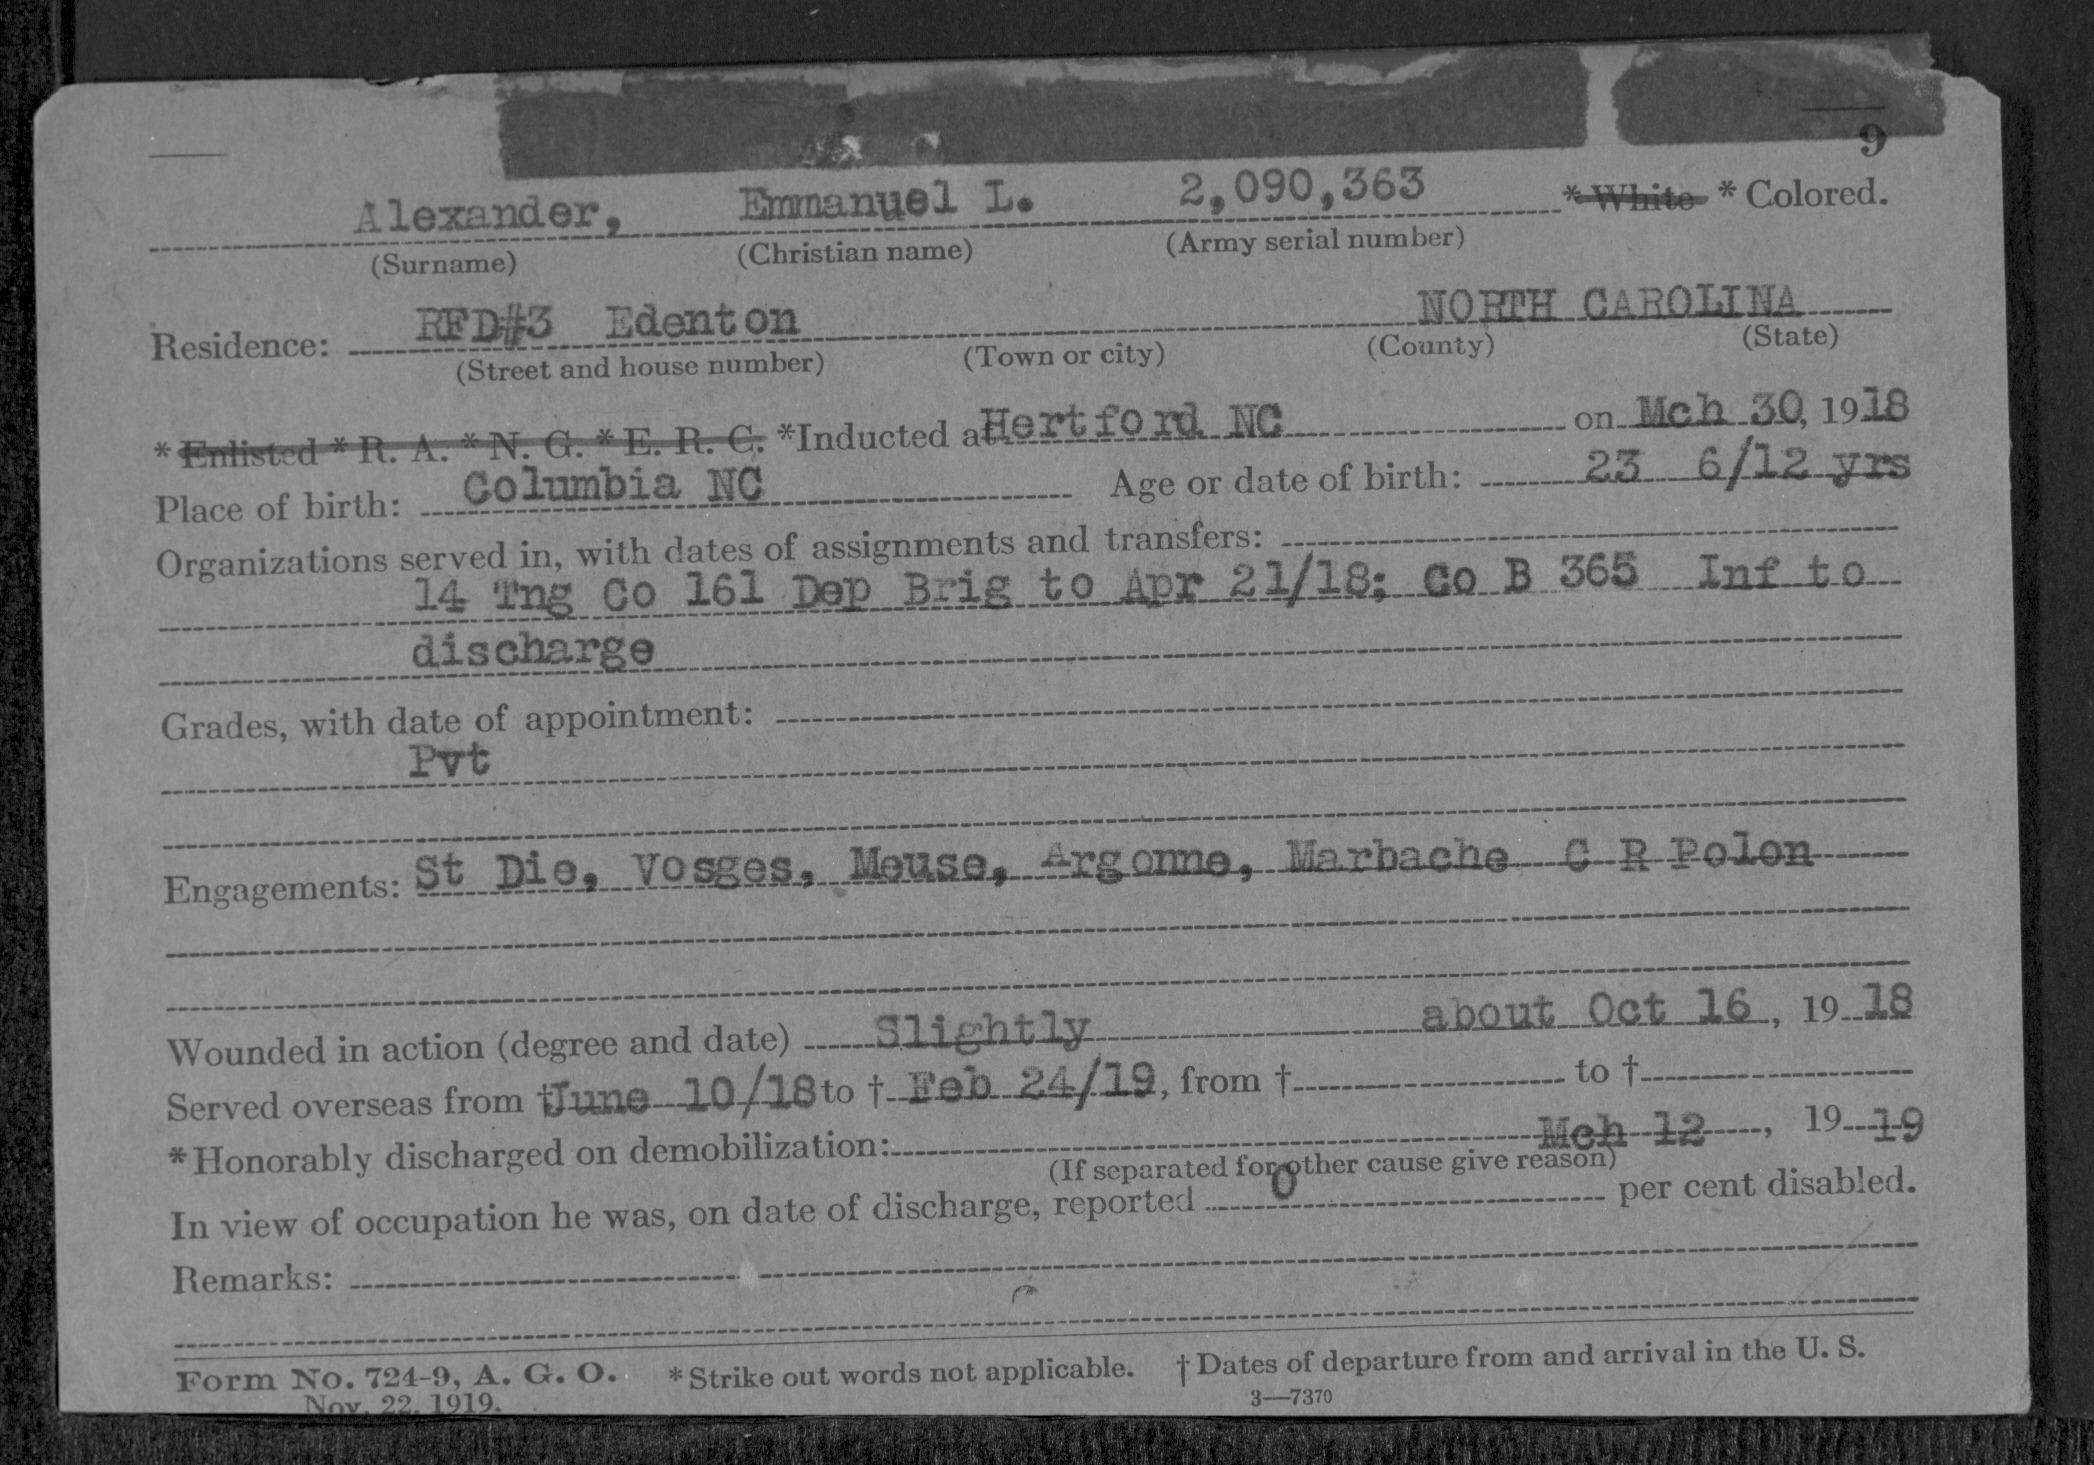 9
Alexander, Emmanuel L. 2,090,363 * White * Colored.
(Surname) (Christian name) (Army serial number)
Residence: RFD#3 Edenton NORTH CAROLINA
(Street and house number) (Town or city) (County) (State)
* Enlisted * R. A. * N. G. * E. R. C. *Inducted at Hertford NC on Mch 30, 1918
Place of birth: Columbia NC Age or date of birth: 23 6/12 yrs
Organizations served in, with dates of assignments and transfers:
14 Tng Co 161 Dep Brig to Apr 21/18; Co B 365 Inf to
discharge
Grades, with date of appointment:
Pvt
Engagements: St Die, Vosges, Meuse, Argonne, Marbache C R Polon
Wounded in action (degree and date) Slightly about Oct 16, 19 18
Served overseas from † June 10/18 to † Feb 24/19, from † to †
* Honorably discharged on demobilization: Mch 12, 19 19
(If separated for other cause give reason)
In view of occupation he was, on date of discharge, reported 0 per cent disabled.
Remarks:
Form No. 724-9, A. G. O. * Strike out words not applicable. † Dates of departure from and arrival in the U. S.
Nov. 22, 1919. 3—7370